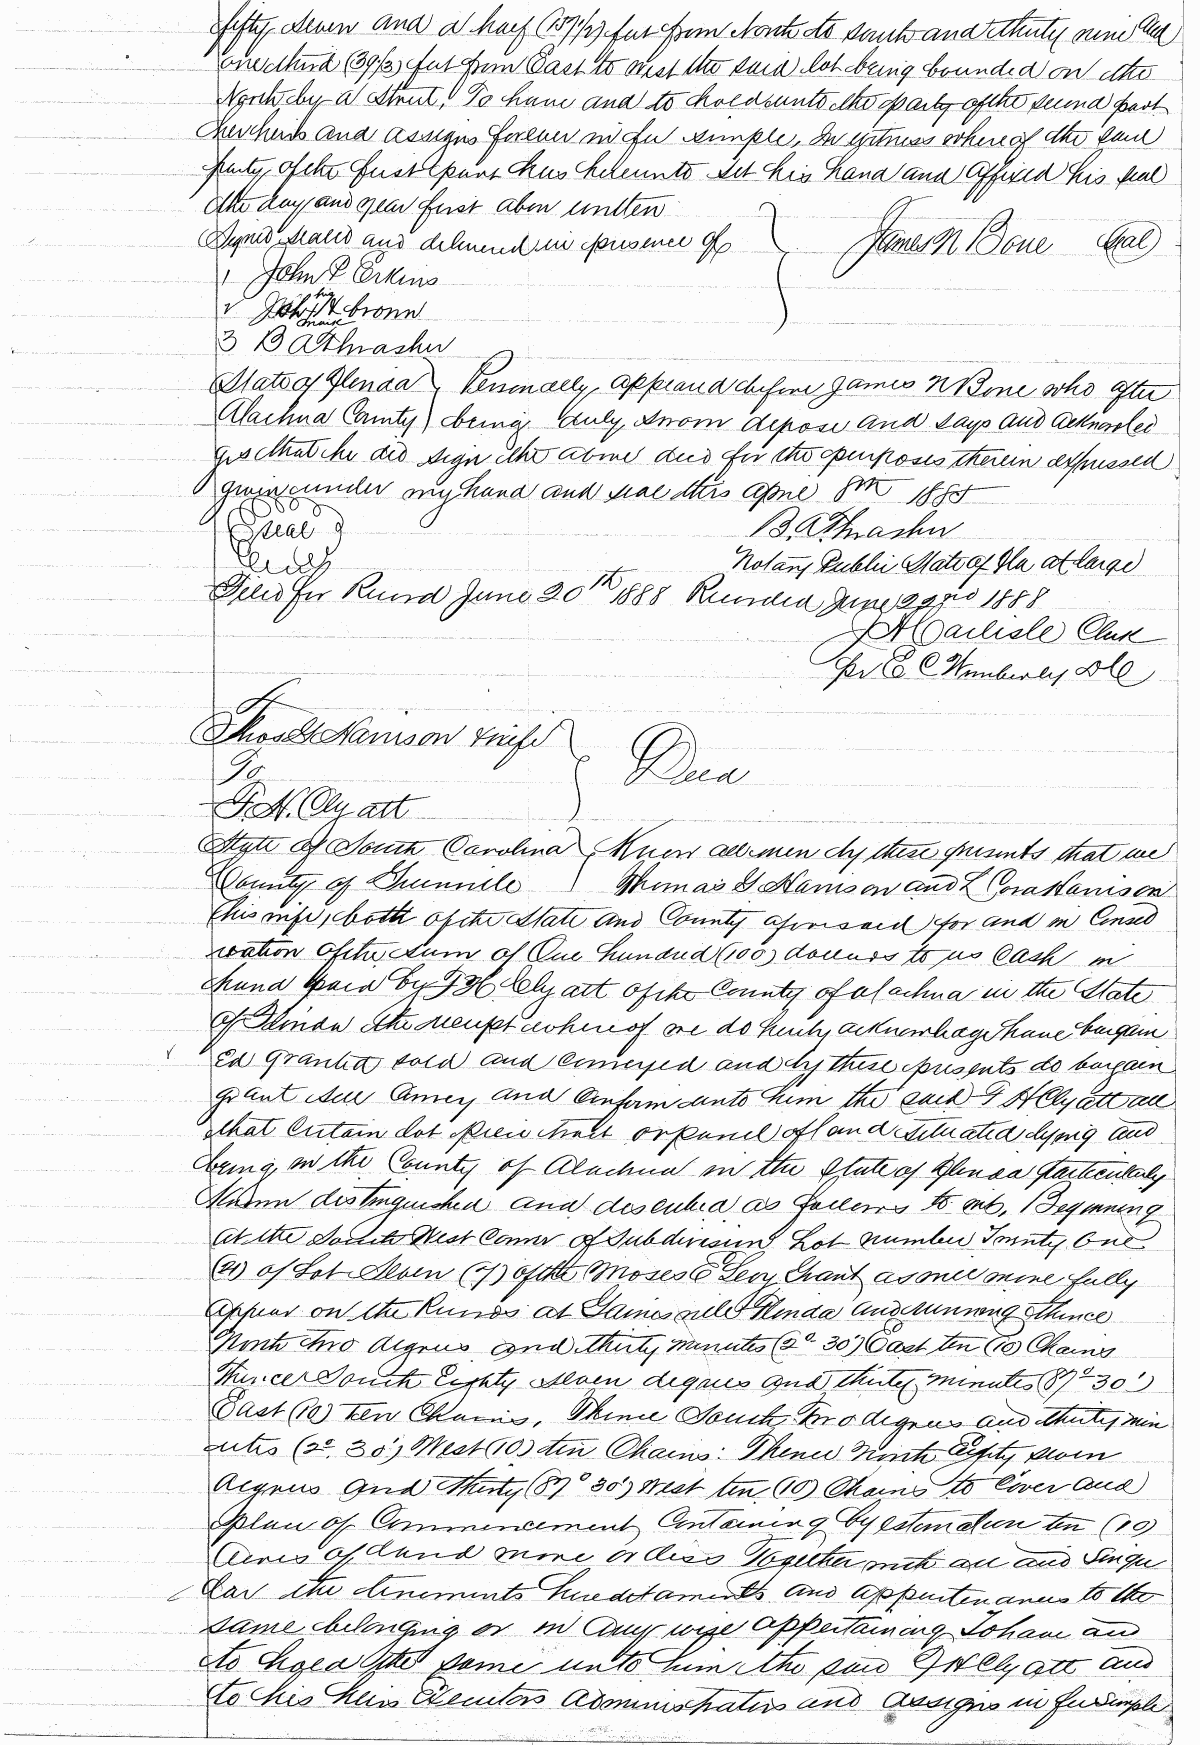 fifty seven and a half (57 1/2) feet from North to south and thirty nine and
one third (39 1/3) feet from East to west the said lot being bounded on the
North by a Street, To have and to hold unto the party of the second part
her heirs and assigns forever in fee simple, In witness where of the said
party of the first part has hereunto set his hand and affixed his seal
the day and year first above written
Signed, sealed and delivered in presence of James N Bone (Seal)
1 John P Erkins
2 his mark brown
3 B A Thrasher
State of Florida } Personally appeared before James N Bone who after
Alachua County } being duly sworn depose and says and acknowled
ges that he did sign the above deed for the purposes therein expressed
given under my hand and seal this April 8th 1885
(Seal) B. A Thrasher
Notary Public State of Fla at large
Filed for Record June 20th 1888 Recorded June 22nd 1888
J A Carlisle Clerk
pr E C Wimberly D C
Thos G Harrison & wife
To } Deed
F. H. Clyatt
State of South Carolina } Know all men by these presents that we
County of Greenville } Thomas G Harrison and L Cora Harrison
his wife, both of the State and County aforesaid for and in Consid
eration of the sum of One hundred (100) dollars to us Cash in
hand paid by F H Clyatt of the County of Alachua in the State
of Florida the receipt where of we do hereby acknowledge have bargain
ed granted sold and conveyed and by these presents do bargain
grant sell Convey and Confirm unto him the said F H Clyatt all
that Certain lot piece tract or parcel of land situated lying and
being in the County of Alachua in the State of Florida particularly
Known distinguished and described as follows to wit, Beginning
at the South West Corner of Subdivision Lot number Twenty One
(21) of Lot Seven (7) of the Moses E Levy Grant as will more fully
appear on the Records at Gainesville Florida and running thence
North two degrees and thirty minutes (2° 30') East ten (10) Chains
Thence South Eighty seven degrees and thirty minutes (87° 30')
East (10) ten Chains, Thence South Two degrees and thirty min
utes (2° 30') West (10) ten Chains: Thence North Eighty seven
degrees and thirty (87° 30') West ten (10) Chains to Cover and
place of Commencement Containing by estimation ten (10)
Acres of land more or less Together with all and Singu
lar the tenements hereditaments and appurtenances to the
same belonging or in any wise appertaining To have and
to hold the same unto him the said F H Clyatt and
to his heirs Executors administrators and assigns in fee simple